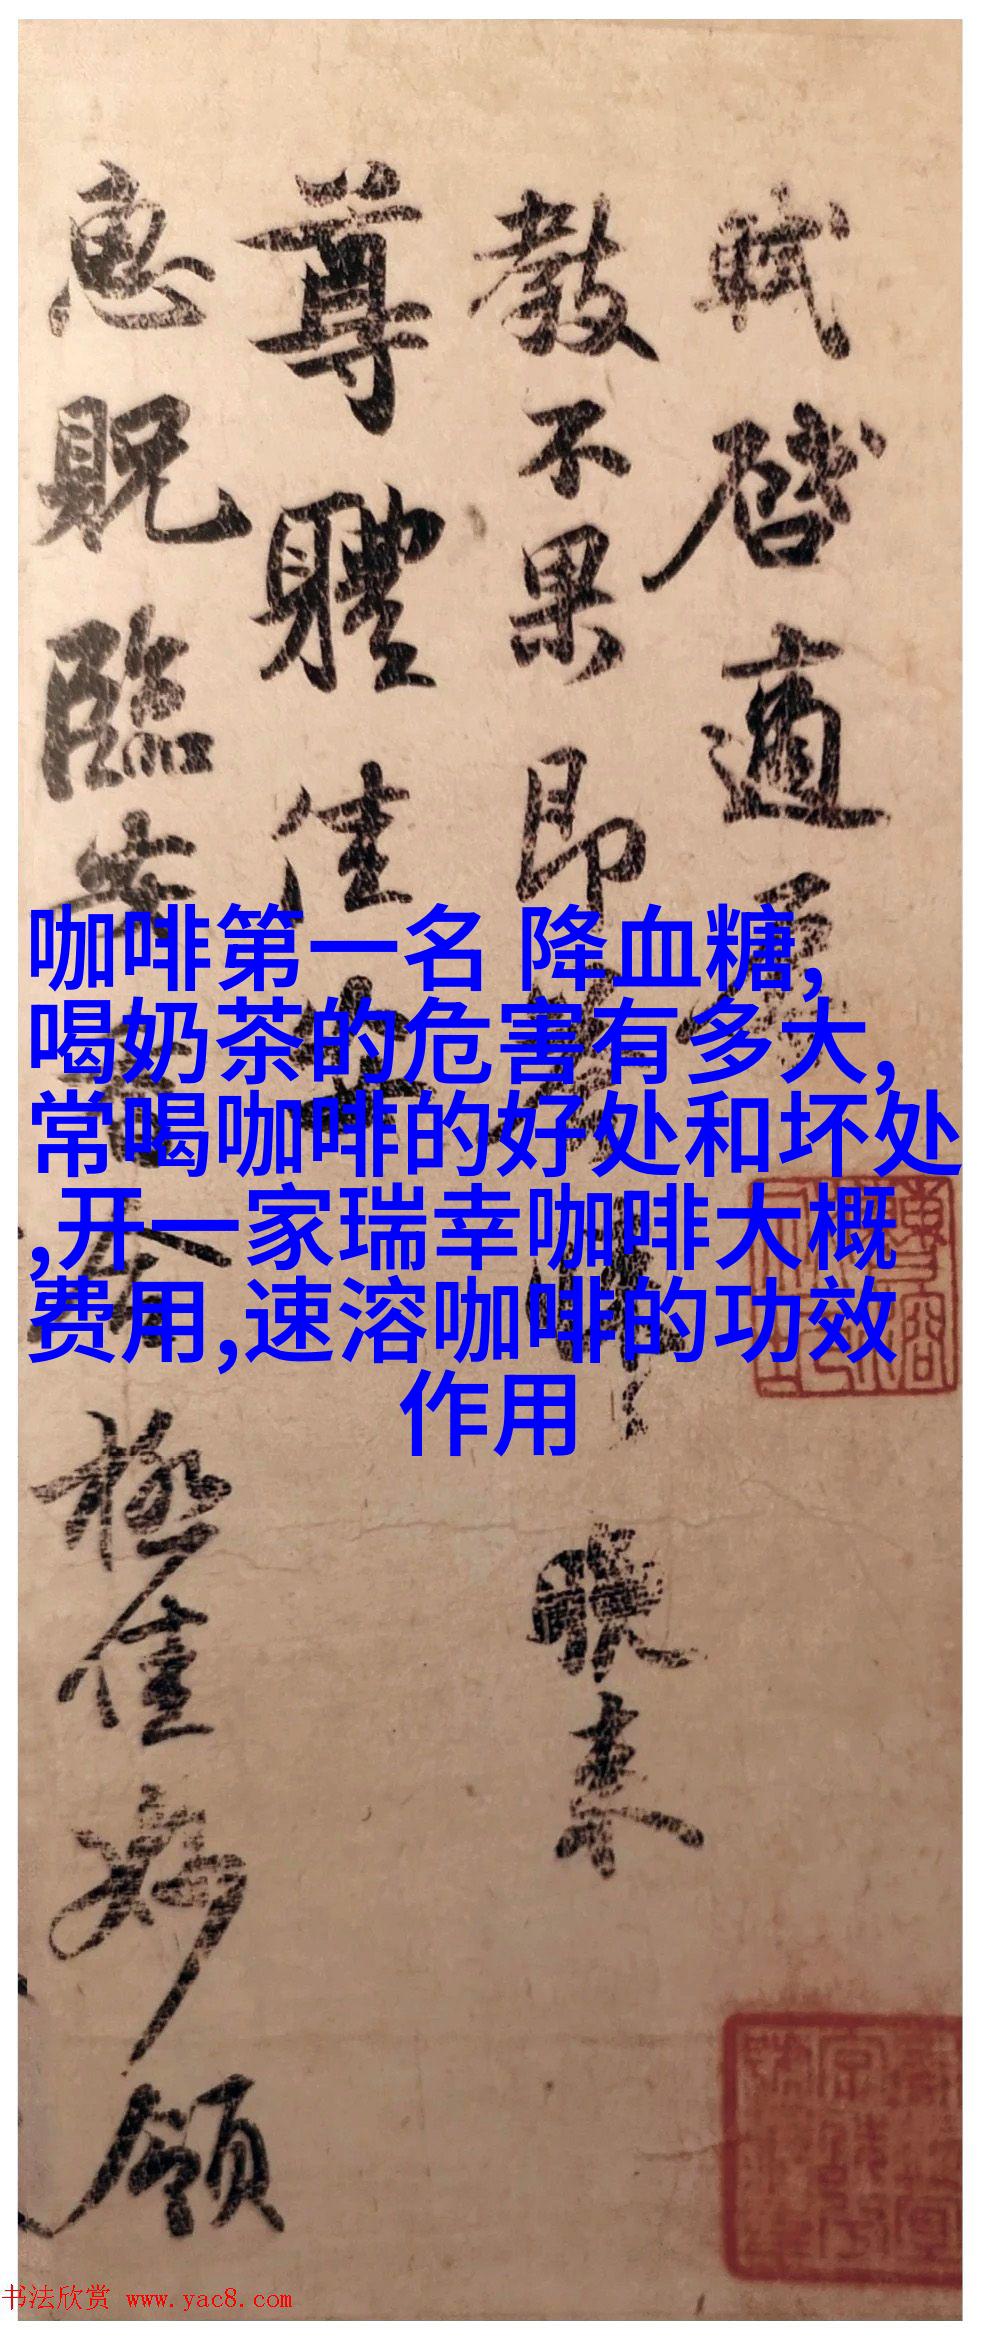 軾啓適
教不果即
晚来
尊體佳
惠貺臨
極佳妙領
咖啡第一名 降血糖,
喝奶茶的危害有多大,
常喝咖啡的好处和坏处
,开一家瑞幸咖啡大概
费用,速溶咖啡的功效
作用
书法欣赏 www.yac8.com